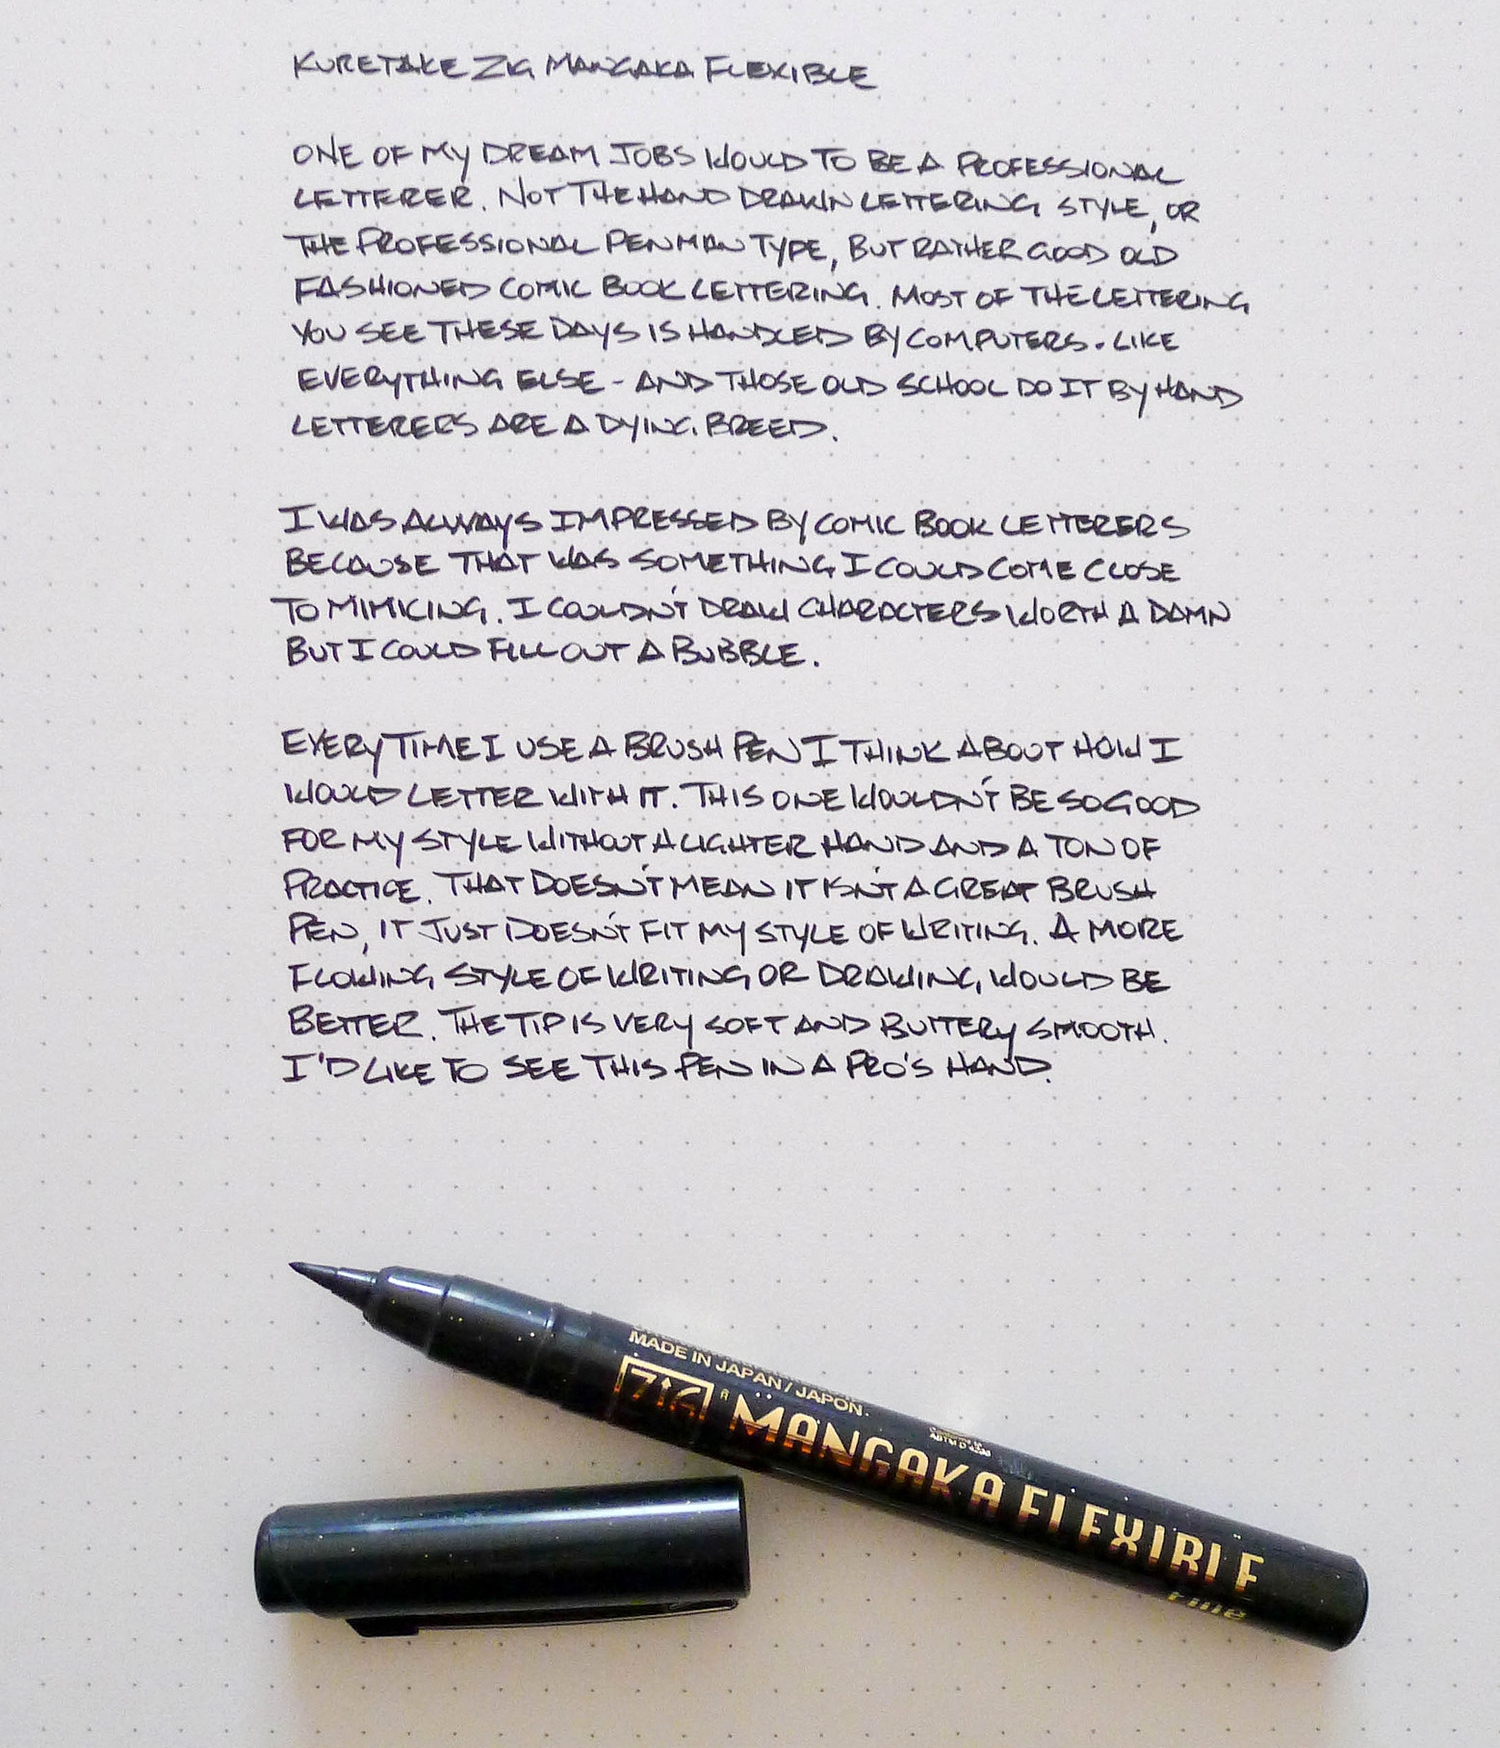 KURETAKE ZIG MANGAKA FLEXIBLE
ONE OF MY DREAM JOBS WOULD TO BE A PROFESSIONAL
LETTERER. NOT THE HAND DRAWN LETTERING STYLE, OR
THE PROFESSIONAL PENMAN TYPE, BUT RATHER GOOD OLD
FASHIONED COMIC BOOK LETTERING. MOST OF THE LETTERING
YOU SEE THESE DAYS IS HANDLED BY COMPUTERS. LIKE
EVERYTHING ELSE - AND THOSE OLD SCHOOL DO IT BY HAND
LETTERERS ARE A DYING BREED.
I WAS ALWAYS IMPRESSED BY COMIC BOOK LETTERERS
BECAUSE THAT WAS SOMETHING I COULD COME CLOSE
TO MIMICING. I COULDN'T DRAW CHARACTERS WORTH A DAMN
BUT I COULD FILL OUT A BUBBLE.
EVERY TIME I USE A BRUSH PEN I THINK ABOUT HOW I
WOULD LETTER WITH IT. THIS ONE WOULDN'T BE SO GOOD
FOR MY STYLE WITHOUT A LIGHTER HAND AND A TON OF
PRACTICE. THAT DOESN'T MEAN IT ISN'T A GREAT BRUSH
PEN, IT JUST DOESN'T FIT MY STYLE OF WRITING. A MORE
FLOWING STYLE OF WRITING OR DRAWING, WOULD BE
BETTER. THE TIP IS VERY SOFT AND BUTTERY SMOOTH.
I'D LIKE TO SEE THIS PEN IN A PRO'S HAND.
MADE IN JAPAN / JAPON.
ZIG ® MANGAKA FLEXIBLE
Conforms to
ASTM D 4236
Fine